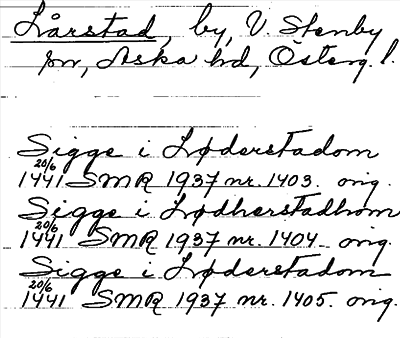 Lårstad, by, V. Stenby
sn, Aska hd, Österg. l.
Sigge i Løderstadom
20/6
1441 SMR 1937 nr. 1403. orig.
Sigge i Lødherstadhom
20/6
1441 SMR 1937 nr. 1404 orig.
Sigge i Løderstadom
20/6
1441 SMR 1937 nr. 1405. orig.